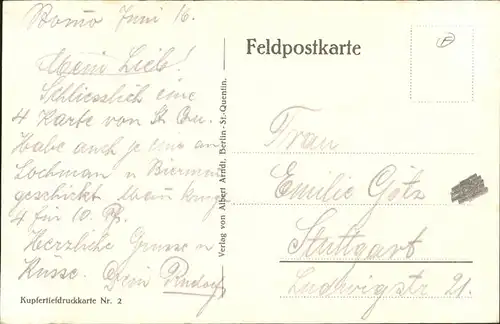 Juni 16.
Mein Lieb!
Schliesslich eine
4 Karte von St. Qu.
Habe auch je eine an
Lochman u
geschickt Man
4 für 10. Pf.
Herzliche Grüsse u
Küsse. Dein Rudolf
Kupfertiefdruckkarte Nr. 2
Verlag von Albert Arndt, Berlin - St. Quentin.
Feldpostkarte
Frau
Emilie Götz
Stuttgart
Ludwigstr 21.